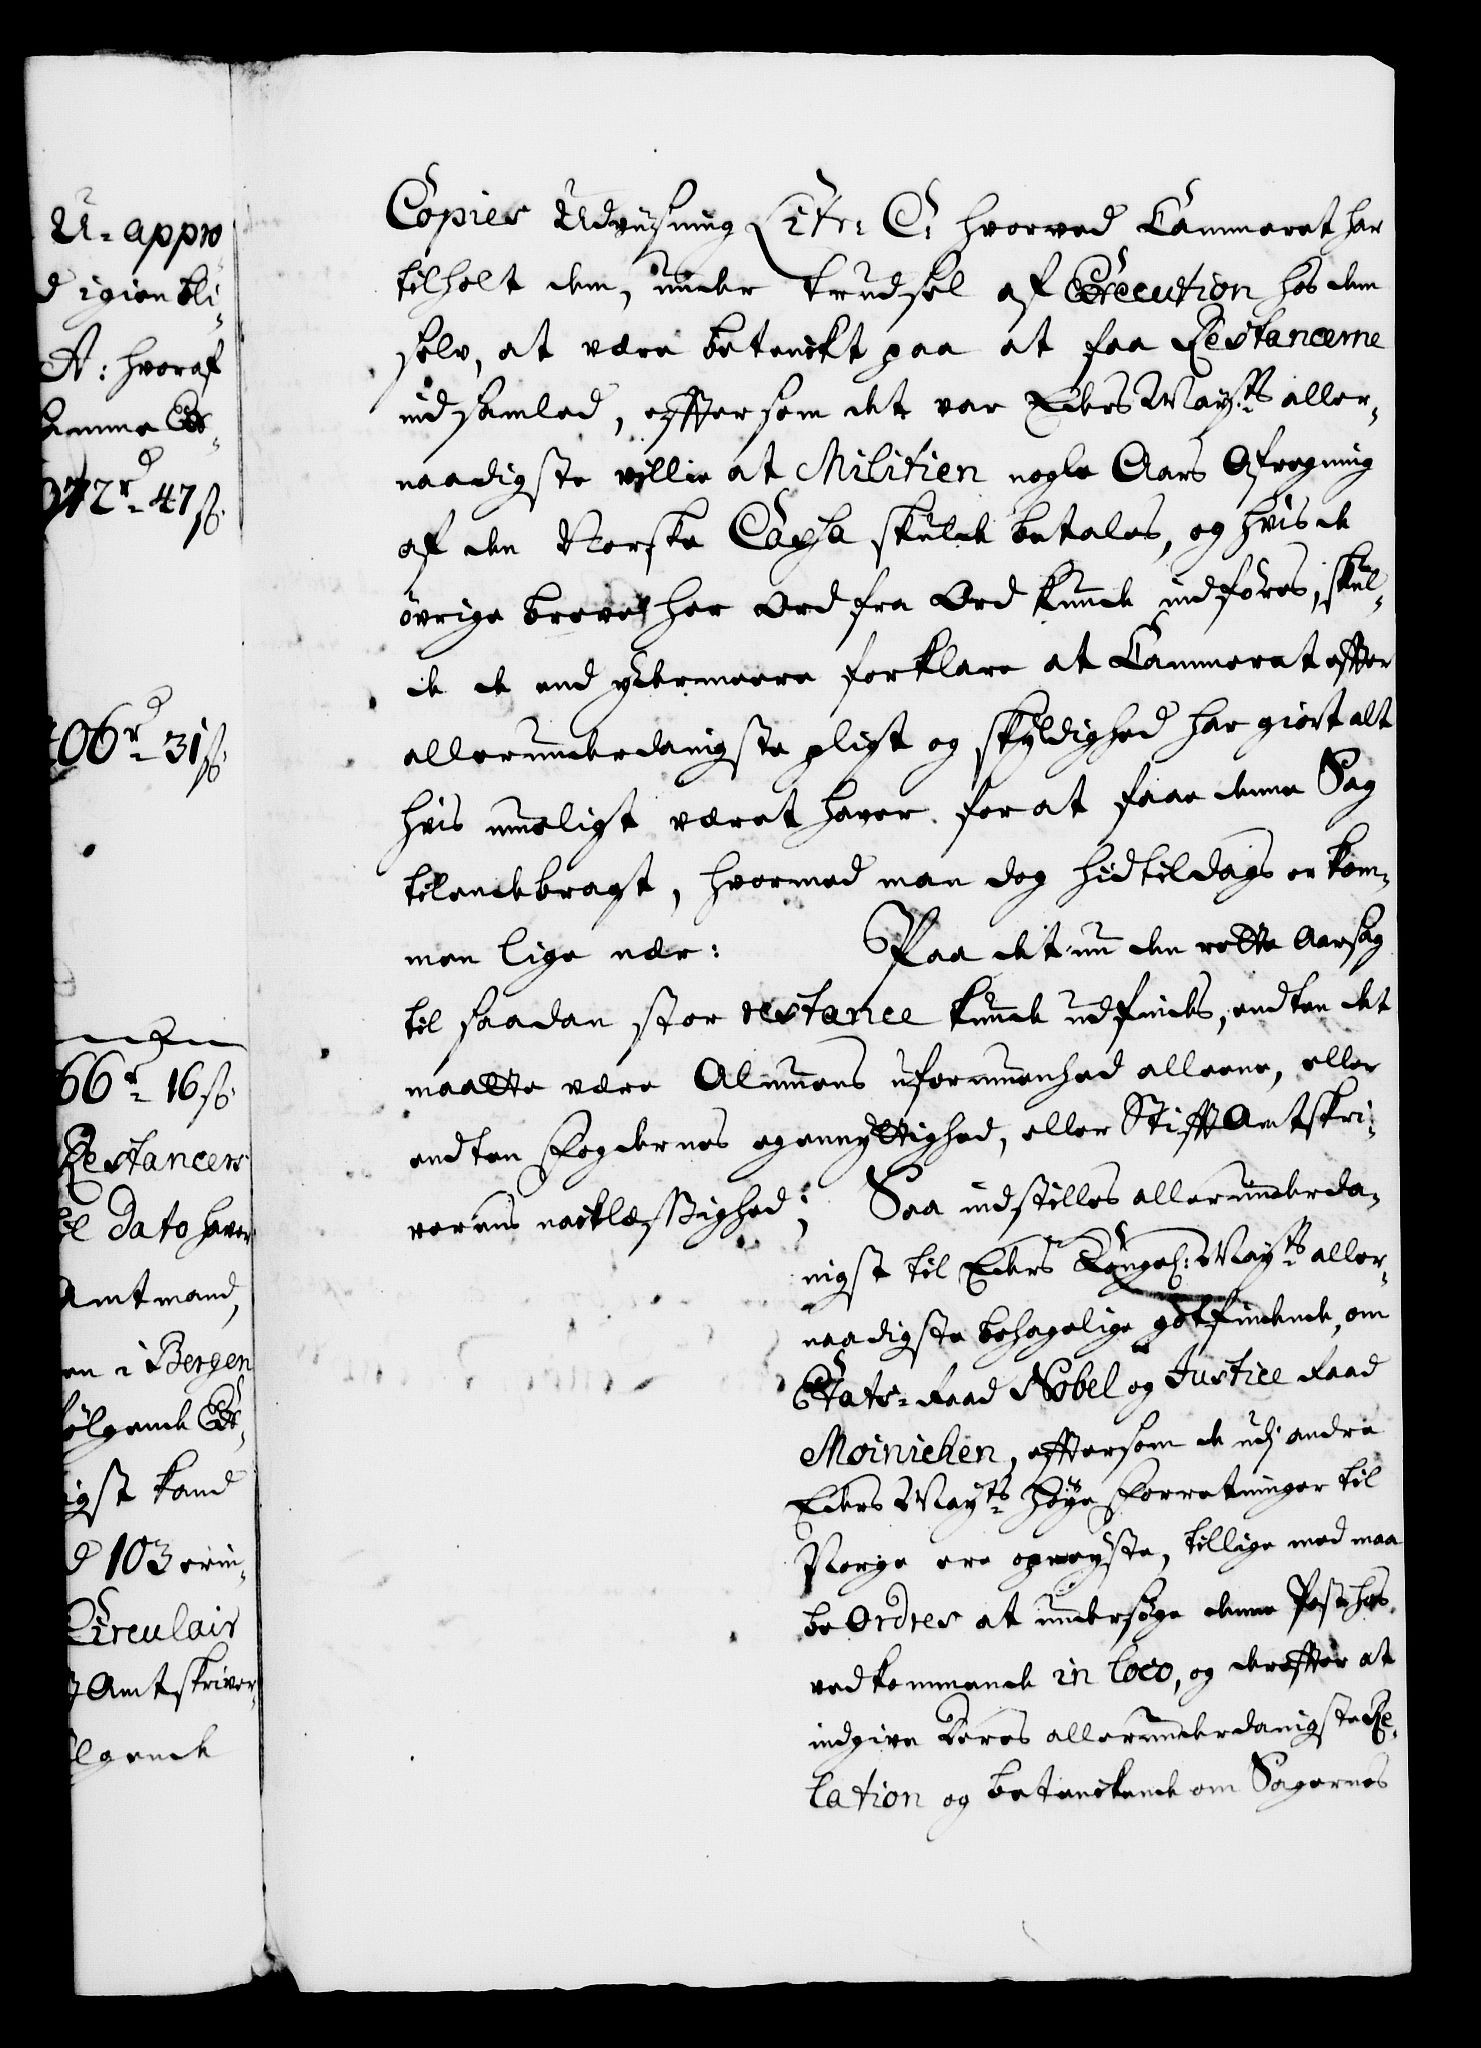 U- appro
d igien bli-
A: hvoraf
Summa
972 rd 47 ß
06 rd 31 ß
66 rd 16 ß
Restancers
Dato haver
Amtmand,
en i Bergen
følgende
igst kand
d 103 erin-
Circulair
Amtskriver-
lgende
Copies Udviisning Litr: C: hvorved Cammeret har
tilholt dem, under trudsel af Execution hos dem
selv, at være betenckt paa at faa Restancerne
indsamled, efftersom det var Eders Mayts aller-
naadigste villie at Militien nogle Aars Afregning
af den Norske Cassa skulde betales, og hvis de
øvrige breve her Ord fra Ord kunde indføres, skul-
de de end ydermeere forklare at Cammeret effter
allerunderdanigste pligt og skyldighed har giort alt
hvis mueligt været haver for at faae denne Sag
tilendebragt, hvormed man dog hidtildags er kom-
men lige nær: Paa det nu den rette Aarsag
til saadan stor restance kunde udfindes, endten det
maatte være Almuens uformuenhed alleene, eller
endten Fogdernes egennyttighed, eller StifftAmtskri-
verens nachlæssighed; Saa indstilles allerunderda-
nigst til Eders Kongel: Mayts aller-
naadigste behagelige gotfindende, om
Etats-Raad Nobel og Justice Raad
Moinichen, efftersom de udj andre
Eders Mayts høye Forretninger til
Norge ere opreyste, tillige med maa
beOrdres at undersøge denne Post hos
vedkommende in loco, og dereffter at
indgive Deres allerunderdanigste Re-
lation og betenckende om Sagernes